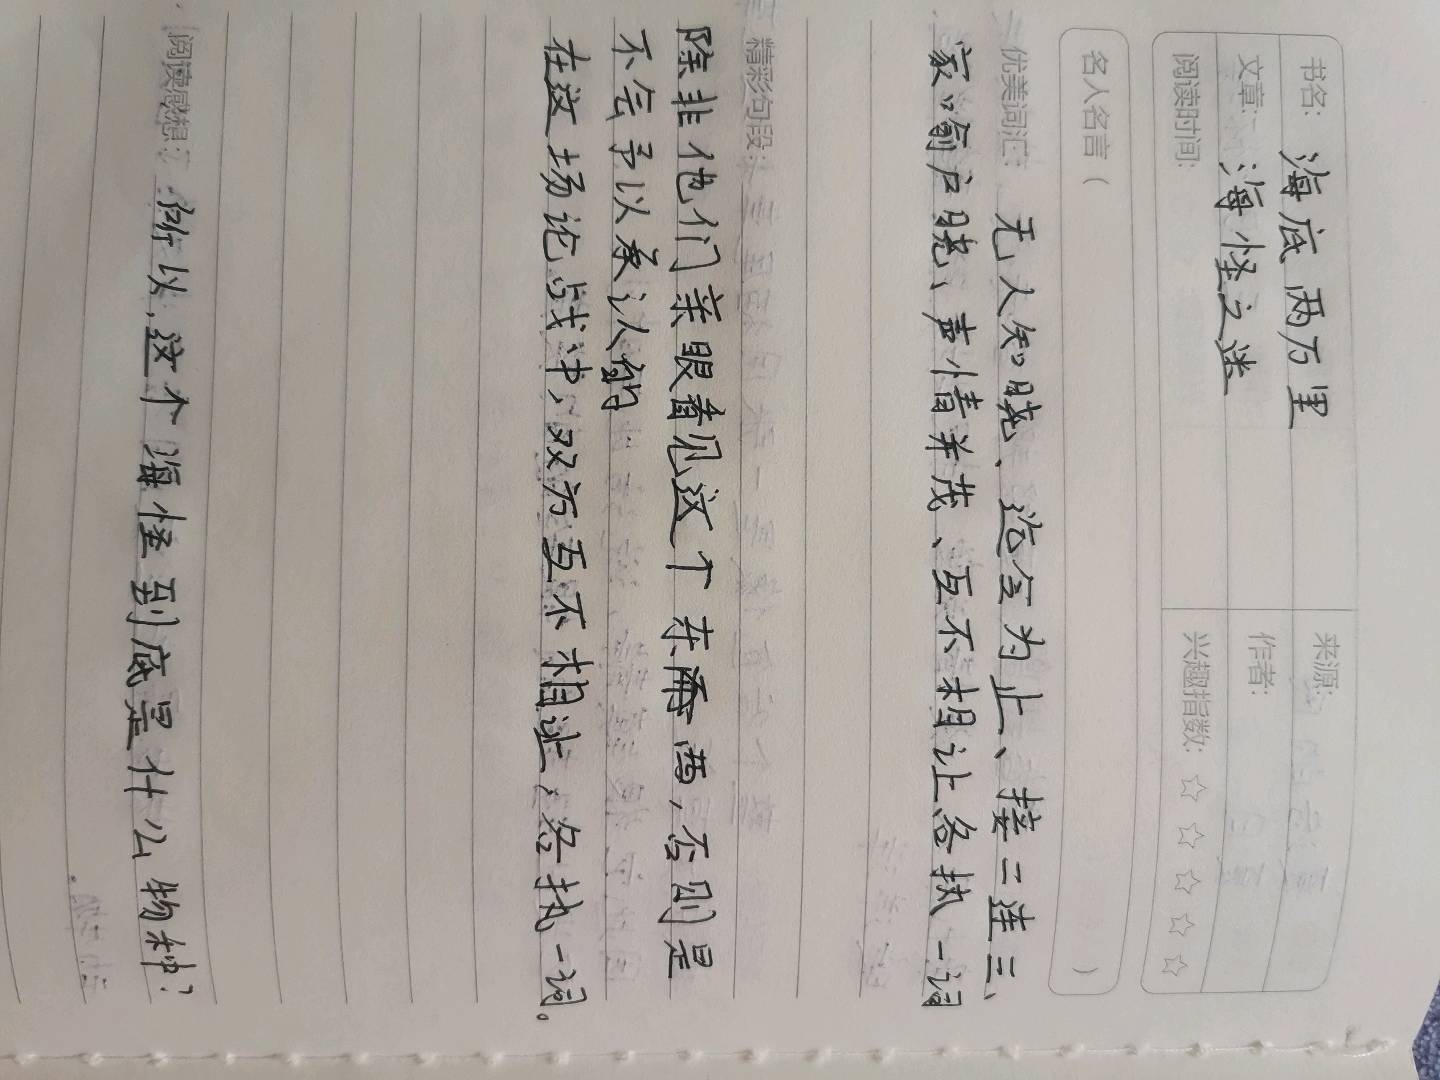 书名: 海底两万里
来源:
文章: 海怪之迷
作者:
阅读时间:
兴趣指数: ☆ ☆ ☆ ☆ ☆
名人名言 (                )
优美词汇: 无人知晓、迄今为止、接二连三、
家喻户晓、声情并茂、互不相让、各执一词
精彩句段:
除非他们亲眼看见这个东西,否则是
不会予以承认的
在这场论战中,双方互不相让,各执一词。
阅读感想: 所以,这个海怪到底是什么物种?